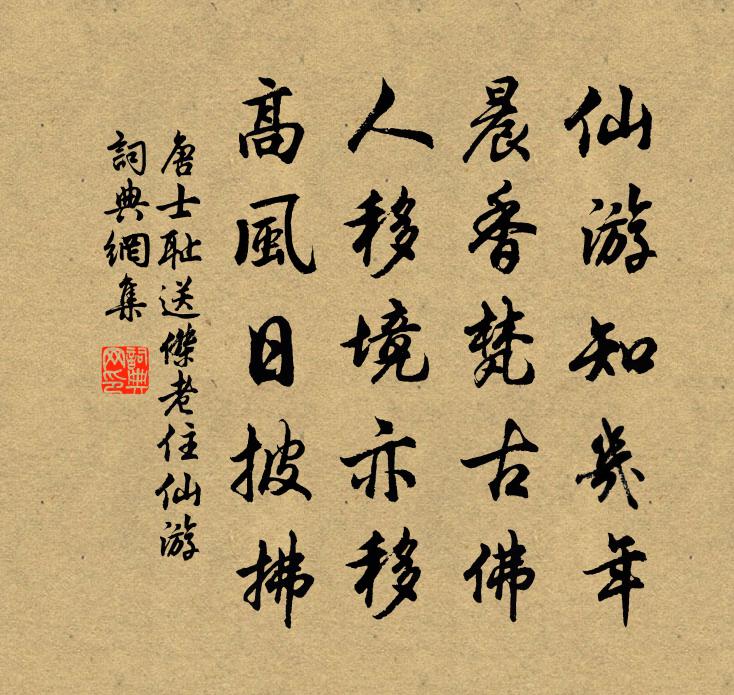 仙游知幾年
晨香梵古佛
人移境亦移
高風日披拂
唐士耻送傑老住仙游
詞典網集
詞典网印